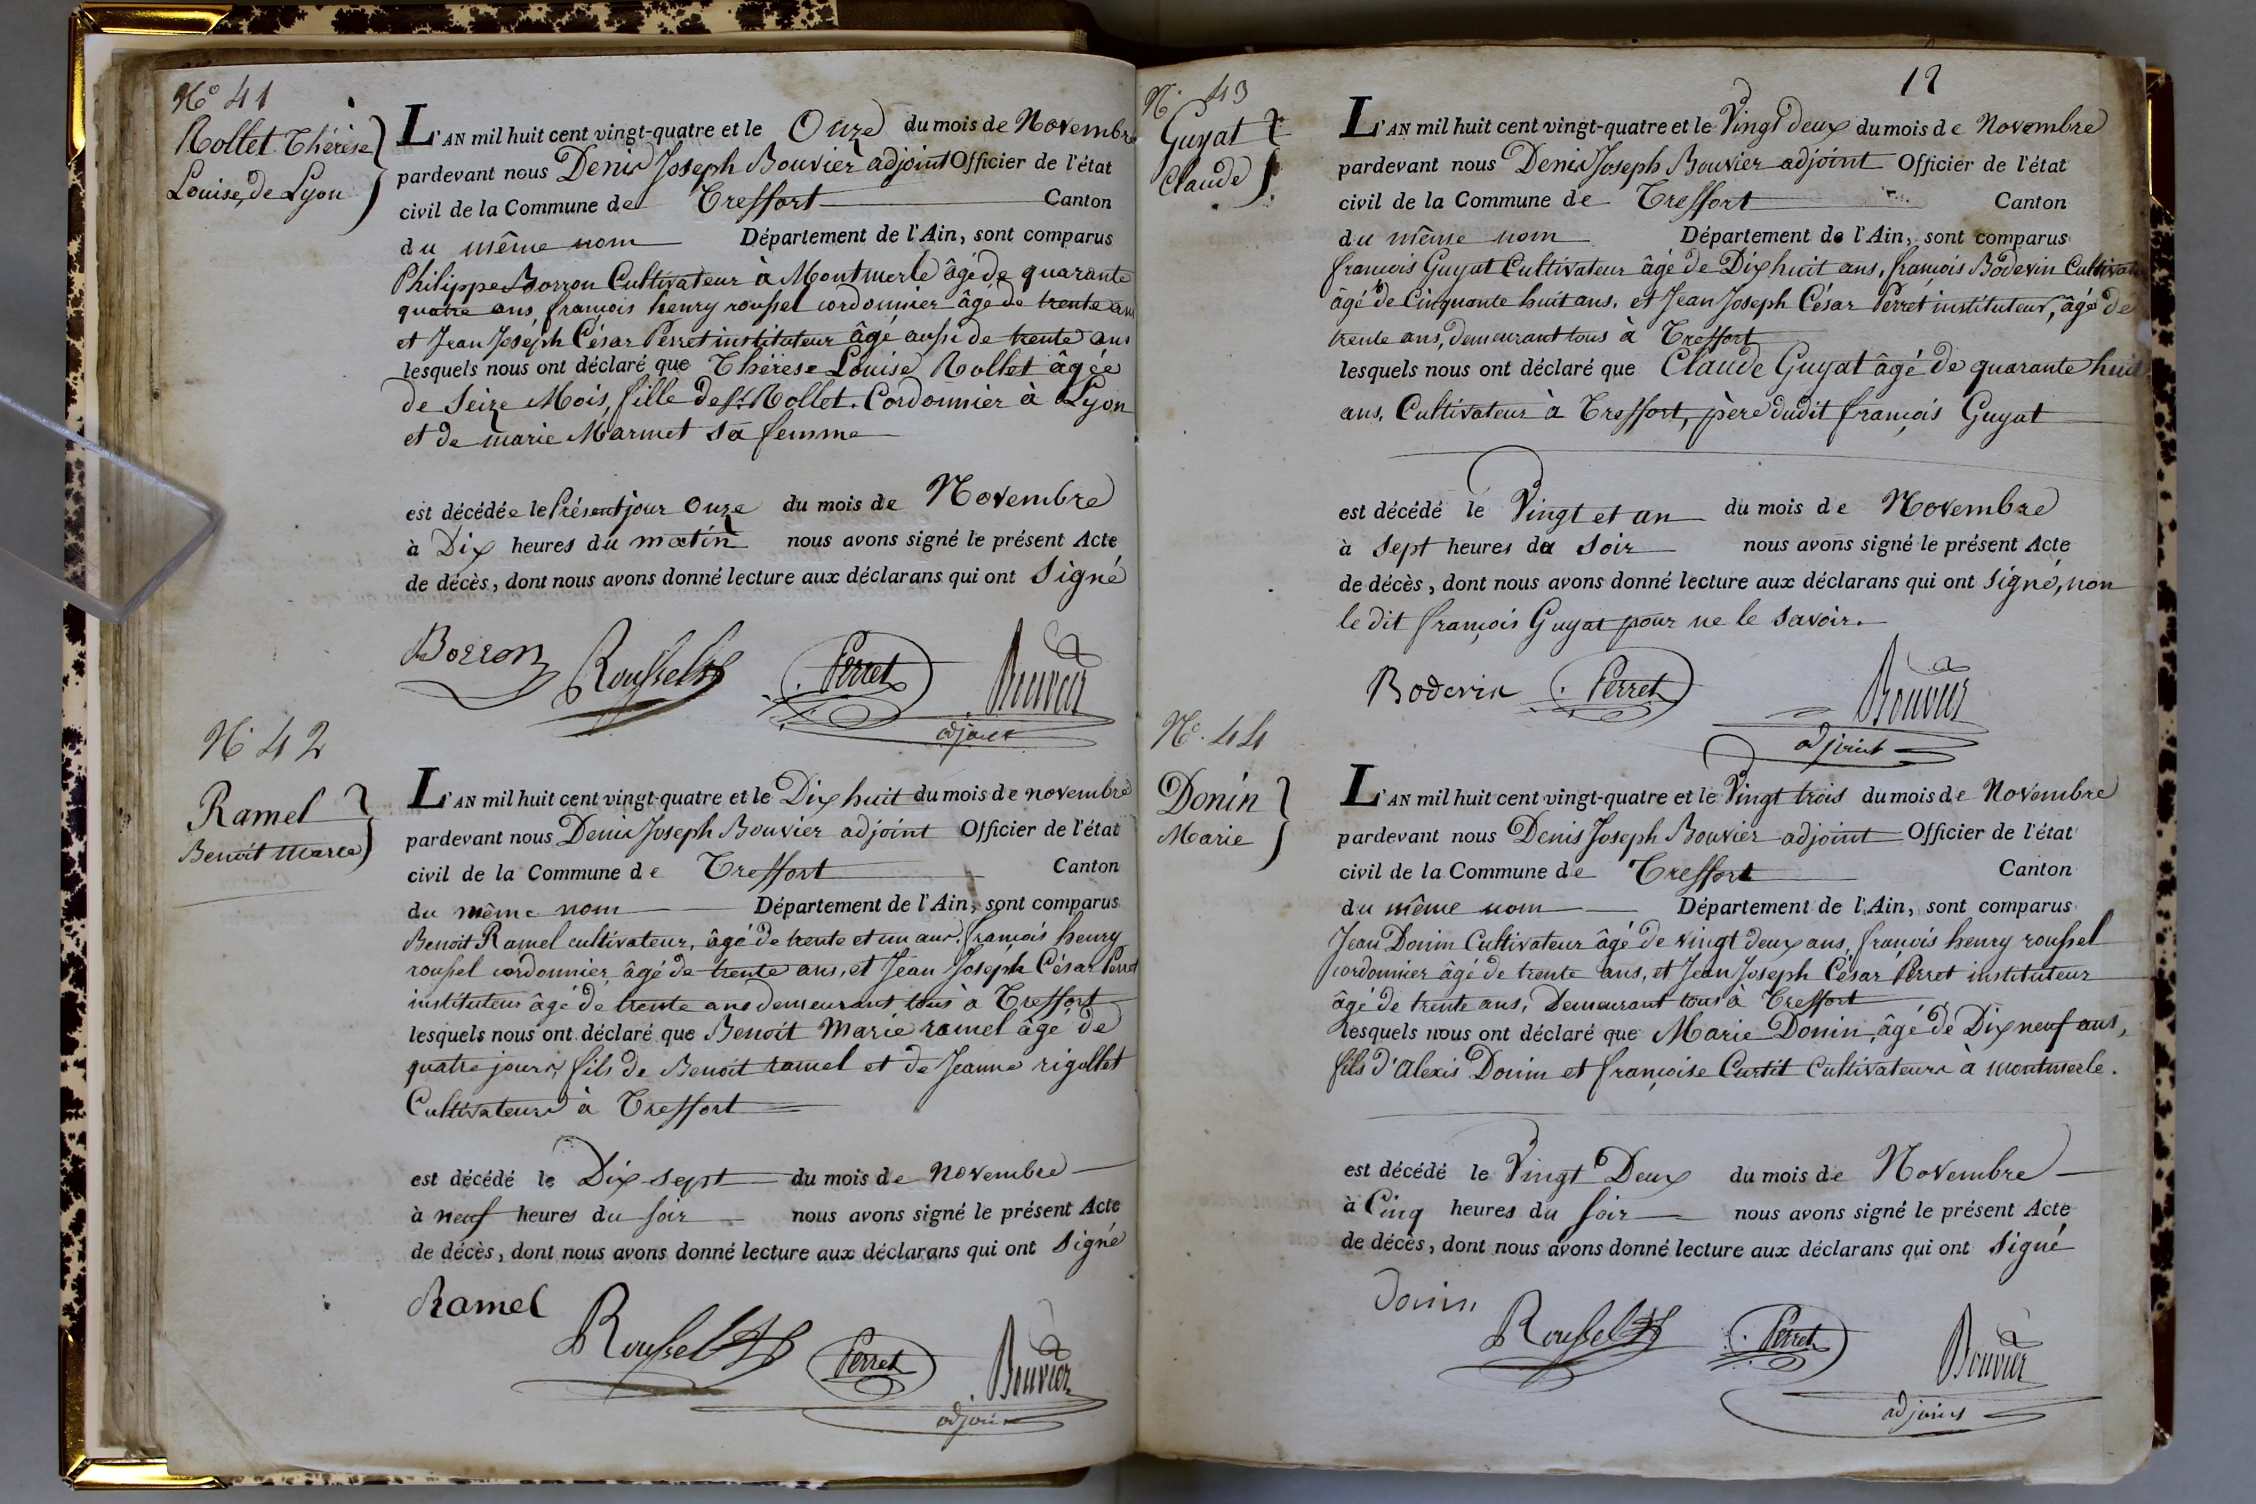 N.º 41
Rollet Thérèse
Louise, de Lyon
L'AN mil huit cent vingt-quatre et le Onze du mois de Novembre
pardevant nous Denis Joseph Bouvier adjoint Officier de l'état
civil de la Commune de Treffort Canton
du même nom Département de l'Ain, sont comparus
Philippe Borron Cultivateur à Montmerle âgé de quarante
quatre ans, françois henry roussel cordonnier âgé de trente ans
et Jean Joseph César Perret instituteur âgé aussi de trente ans
lesquels nous ont déclaré que Thérèse Louise Rollet âgée
de Seize Mois, fille de Sr. Rollet. Cordonnier à Lyon
et de marie Marmet sa femme
est décédée le Présent jour onze du mois de Novembre
à Dix heures du matin nous avons signé le présent Acte
de décès, dont nous avons donné lecture aux déclarans qui ont signé
Borron Roussel Perret Bouvier
adjoint
N.º 42
Ramel
Benoit Marie
L'AN mil huit cent vingt-quatre et le Dix huit du mois de novembre
pardevant nous Denis Joseph Bouvier adjoint Officier de l'état
civil de la Commune de Treffort Canton
du même nom Département de l'Ain, sont comparus
Benoit Ramel cultivateur, âgé de trente et un ans. françois henry
roussel cordonnier âgé de trente ans, et Jean Joseph César Perret
instituteur âgé de trente ans demeurant tous à Treffort
lesquels nous ont déclaré que Benoit Marie ramel âgé de
quatre jours, fils de Benoit ramel et de Jeanne rigollet
Cultivateurs à Treffort
est décédé le Dix-sept du mois de novembre
à neuf heures du soir nous avons signé le présent Acte
de décès, dont nous avons donné lecture aux déclarans qui ont signé
Ramel Roussel Perret Bouvier
adjoint
N.º 43
Guyat
Claude
L'AN mil huit cent vingt-quatre et le Vingt deux du mois de Novembre
pardevant nous Denis Joseph Bouvier adjoint Officier de l'état
civil de la Commune de Treffort Canton
du même nom Département de l'Ain, sont comparus
francois Guyat Cultivateur âgé de Dix huit ans, françois Bodevin Cultivateur
âgé de Cinquante huit ans. et Jean Joseph César Perret instituteur, âgé de
trente ans, demeurant tous à Treffort
lesquels nous ont déclaré que Claude Guyat âgé de quarante huit
ans, Cultivateur à Treffort, père dudit françois Guyat
est décédé le Vingt et un du mois de Novembre
à sept heures du soir nous avons signé le présent Acte
de décès, dont nous avons donné lecture aux déclarans qui ont signé, non
le dit françois Guyat pour ne le savoir.
Bodevin Perret Bouvier
adjoint
N.º 44
Donin
Marie
L'AN mil huit cent vingt-quatre et le Vingt trois du mois de Novembre
pardevant nous Denis Joseph Bouvier adjoint Officier de l'état
civil de la Commune de Treffort Canton
du même nom Département de l'Ain, sont comparus
Jean Donin Cultivateur âgé de vingt deux ans, françois henry roussel
cordonnier âgé de trente ans, et Jean Joseph César Perret instituteur
âgé de trente ans, Demeurant tous à Treffort
lesquels nous ont déclaré que Marie Donin, âgé de Dix neuf ans,
fils d'Alexis Donin et françoise Curtit Cultivateurs à montmerle.
est décédé le Vingt Deux du mois de Novembre
à Cinq heures du soir nous avons signé le présent Acte
de décès, dont nous avons donné lecture aux déclarans qui ont signé
Donin Roussel Perret Bouvier
adjoint